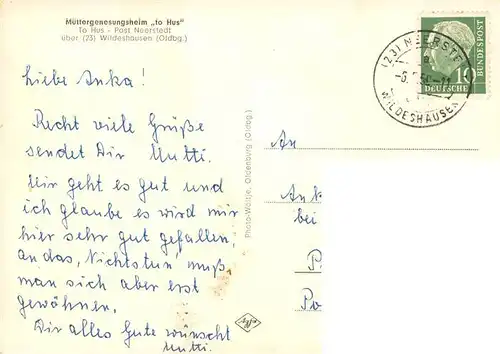 Müttergenesungsheim „to Hus"
To Hus - Post Neerstedt
über (23) Wildeshausen (Oldbg.)
Liebe Anka!
Recht viele Grüße
sendet Dir Mutti.
Mir geht es gut und
ich glaube es wird mir
hier sehr gut gefallen,
an das, Nichtstun' muß
man sich aber erst
gewöhnen.
Dir alles Gute wünscht
Mutti.
Photo-Wöltje, Oldenburg (Oldbg.)
(23) NEERSTE
WILDESHAUSEN
10
DEUTSCHE
BUNDESPOST
An
Ank
bei
P
Po